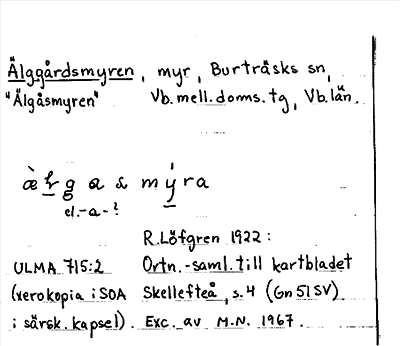 Älggårdsmyren, myr, Burträsks sn,
"Älgåsmyren" Vb. mell. doms. tg, Vb. län.
el. -a- ?
R. Löfgren 1922:
ULMA 715:2 Ortn.-saml. till kartbladet
(xerokopia i SOA Skellefteå, s. 4 (Gn 51 SV)
i särsk. kapsel). Exc. av M.N. 1967.